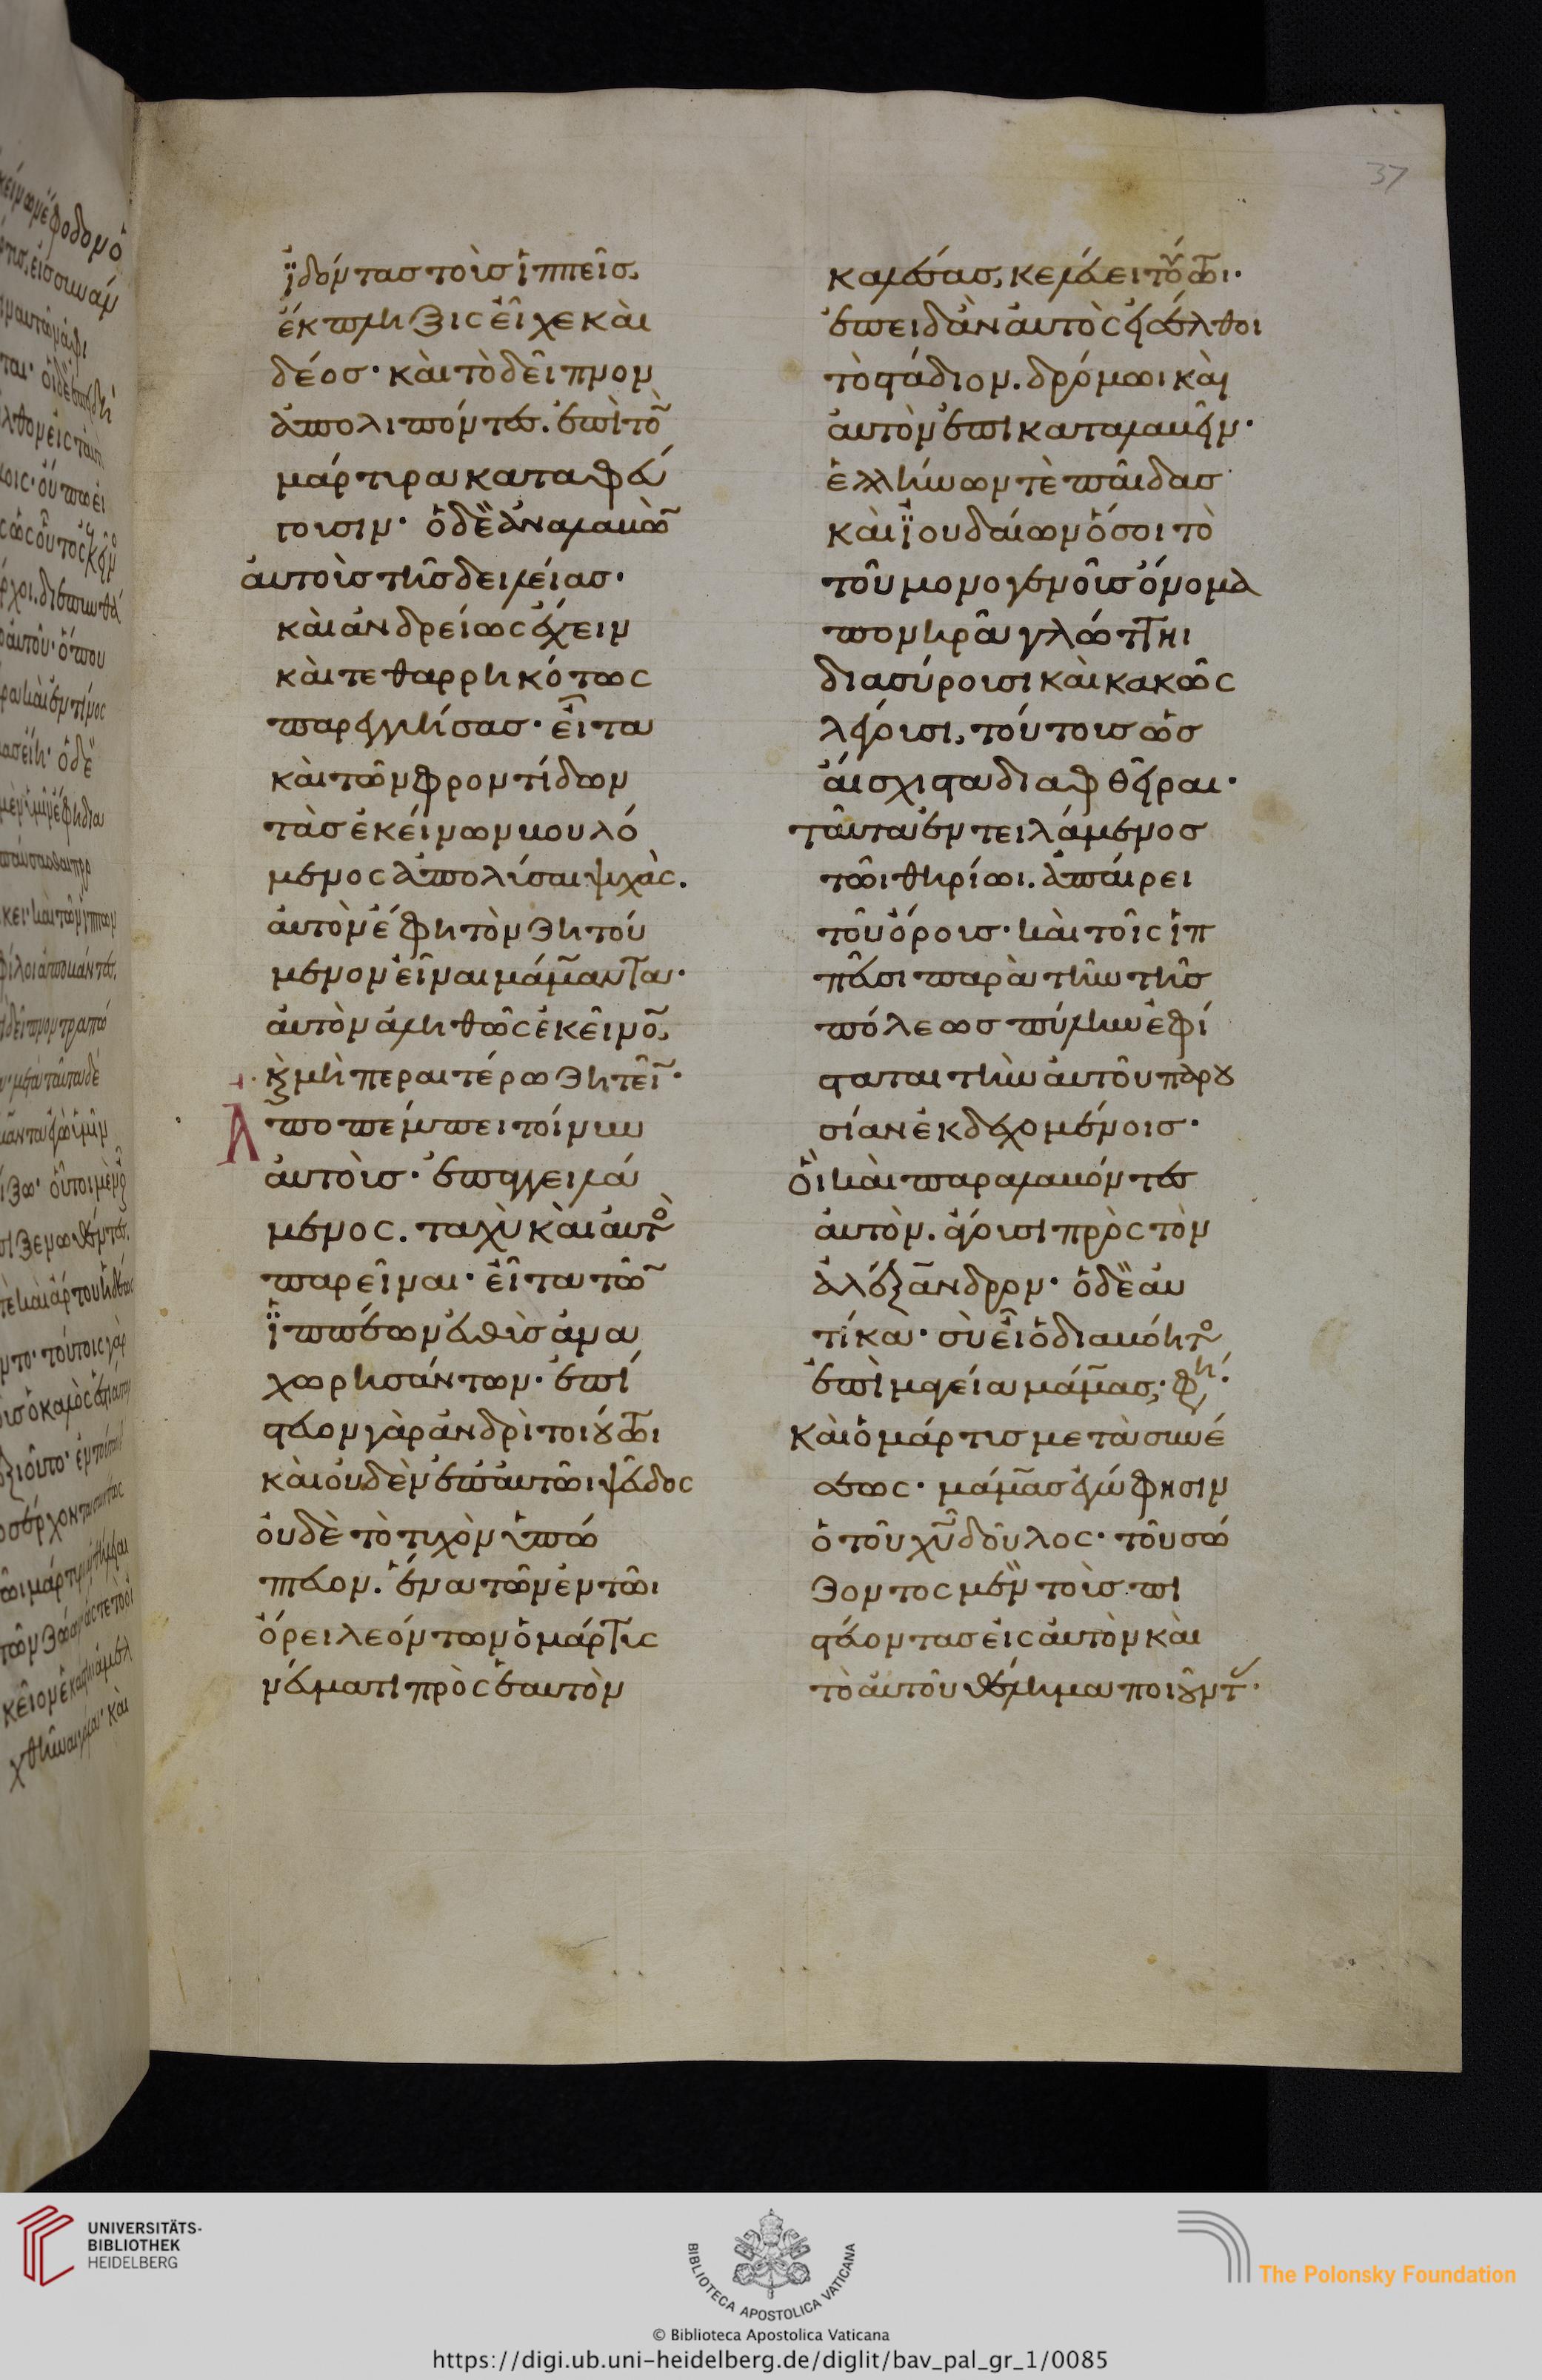 ἰδόντας τοὺς ἱππεῖς,
ἔκπληξις εἶχε καὶ
δέος· καὶ τὸ δεῖπνον
ἀπολιπόντες. ἐπὶ τὸ̄
μάρτυρα καταφεύ
γουσιν· ὁ δὲ ἀναλαβὼ̄
αὐτοὺς τῆς δειλείας·
καὶ ἀνδρείως ἔχειν
καὶ τεθαρρηκότως
παρεγγυήσας· εἶτα
καὶ τῶν φροντίδων
τὰς ἐκείνων βουλό
μενος ἀπολῦσαι ψυχὰς.
αὐτὸν ἔφη τὸν ζητού
μενον εἶναι μάμαντα·
αὐτὸν ἀληθῶς ἐκεῖνο̄,
ϗ μὴ περαιτέρω ζητεῖ̄·
Ἀποπέμπει τοίνυν
αὐτοὺς· ἐπαγγειλά
μενος. ταχὺ καὶ αὐτὸ
παρεῖναι· εἶτα τῶ̄
ἱππέων εὐθὺς ἀνα
χωρησάντων· ἐπί
στευον γὰρ ἀνδρὶ τοιούτωι
καὶ οὐδὲν ἐπ αὐτῶι ψεῦδος
οὐδὲ τὸ τυχὸν ὑπώ
πτευον. ἕνα τῶν ἐν τῶι
ὄρει λεόντων ὁ μάρτυς
νεύματι πρὸς ἑαυτὸν
37
καλέσας, κελεύει τούτωι·
ἐπειδὰν αὐτὸς εἰσέλθοι
τὸ στάδιον. δρόμωι καὶ
αὐτὸν ἐπικαταλαβεῖν·
ἑλλήνων τὲ παῖδας
καὶ ἰουδαίων ὅσοι τὸ
τοῦ μονογενοῦς ὄνομα
πονηρᾶ γλώττηι
διασύρουσι καὶ κακῶς
λέγουσι, τούτους ὡς
αἴσχιστα διαφθεῖραι·
ταῦτα ἐντειλάμενος
τῶι θηρίωι. ἀπαίρει
τοῦ ὄρους· καὶ τοῖς ἱπ
πεῦσι παρὰ τὴν τῆς
πόλεως πύλην ἐφί
σταται τὴν αὐτοῦ παρου
σίαν ἐκδεχομένοις·
οἳ καὶ παραλαβόντες
αὐτὸν. ἄγουσι πρὸς τὸν
ἀλέξανδρον· ὁ δὲ αὐ
τίκα· σὺ εἶ ὁ διαβόητο
ἐπὶ μαγεία μάμας; φη·
καὶ ὁ μάρτυς μετὰ συνέ
σεως· μάμας ἐγώ φησιν
ὁ τοῦ χῦ δοῦλος· τοῦ σώ
ζοντος μὲν τοὺς πι
στεύοντας εἰς αὐτὸν καὶ
τὸ αὐτοῦ θέλημα ποιοῦντ·
UNIVERSITÄTS-
BIBLIOTHEK
HEIDELBERG
BIBLIOTECA APOSTOLICA VATICANA
The Polonsky Foundation
© Biblioteca Apostolica Vaticana
https://digi.ub.uni-heidelberg.de/diglit/bav_pal_gr_1/0085